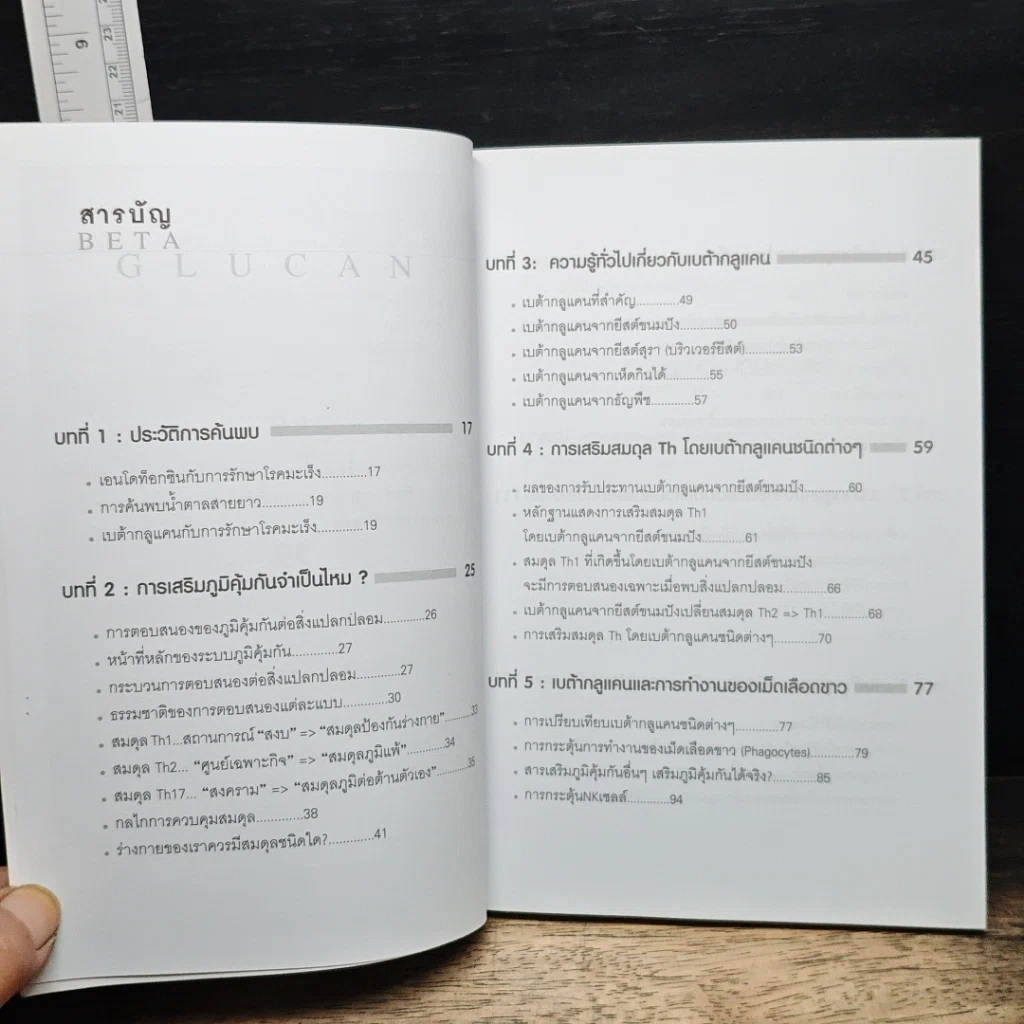 9
23
22
21
สารบัญ
BETA
GLUCAN
บทที่ 1 : ประวัติการค้นพบ 17
• เอนโดท็อกซินกับการรักษาโรคมะเร็ง............17
• การค้นพบน้ำตาลสายยาว............19
• เบต้ากลูแคนกับการรักษาโรคมะเร็ง............19
บทที่ 2 : การเสริมภูมิคุ้มกันจำเป็นไหม ? 25
• การตอบสนองของภูมิคุ้มกันต่อสิ่งแปลกปลอม............26
• หน้าที่หลักของระบบภูมิคุ้มกัน............27
• กระบวนการตอบสนองต่อสิ่งแปลกปลอม............27
• ธรรมชาติของการตอบสนองแต่ละแบบ............30
• สมดุล Th1...สถานการณ์ “สงบ” => “สมดุลป้องกันร่างกาย”............33
• สมดุล Th2... “ศูนย์เฉพาะกิจ” => “สมดุลภูมิแพ้”............34
• สมดุล Th17... “สงคราม” => “สมดุลภูมิต่อต้านตัวเอง”............35
• กลไกการควบคุมสมดุล............38
• ร่างกายของเราควรมีสมดุลชนิดใด?............41
บทที่ 3: ความรู้ทั่วไปเกี่ยวกับเบต้ากลูแคน 45
• เบต้ากลูแคนที่สำคัญ............49
• เบต้ากลูแคนจากยีสต์ขนมปัง............50
• เบต้ากลูแคนจากยีสต์สุรา (บริวเวอร์ยีสต์)............53
• เบต้ากลูแคนจากเห็ดกินได้............55
• เบต้ากลูแคนจากธัญพืช............57
บทที่ 4 : การเสริมสมดุล Th โดยเบต้ากลูแคนชนิดต่างๆ 59
• ผลของการรับประทานเบต้ากลูแคนจากยีสต์ขนมปัง............60
• หลักฐานแสดงการเสริมสมดุล Th1
โดยเบต้ากลูแคนจากยีสต์ขนมปัง............61
• สมดุล Th1 ที่เกิดขึ้นโดยเบต้ากลูแคนจากยีสต์ขนมปัง
จะมีการตอบสนองเฉพาะเมื่อพบสิ่งแปลกปลอม............66
• เบต้ากลูแคนจากยีสต์ขนมปังเปลี่ยนสมดุล Th2 => Th1............68
• การเสริมสมดุล Th โดยเบต้ากลูแคนชนิดต่างๆ............70
บทที่ 5 : เบต้ากลูแคนและการทำงานของเม็ดเลือดขาว 77
• การเปรียบเทียบเบต้ากลูแคนชนิดต่างๆ............77
• การกระตุ้นการทำงานของเม็ดเลือดขาว (Phagocytes)............79
• สารเสริมภูมิคุ้มกันอื่นๆ เสริมภูมิคุ้มกันได้จริง?............85
• การกระตุ้นNKเซลล์............94